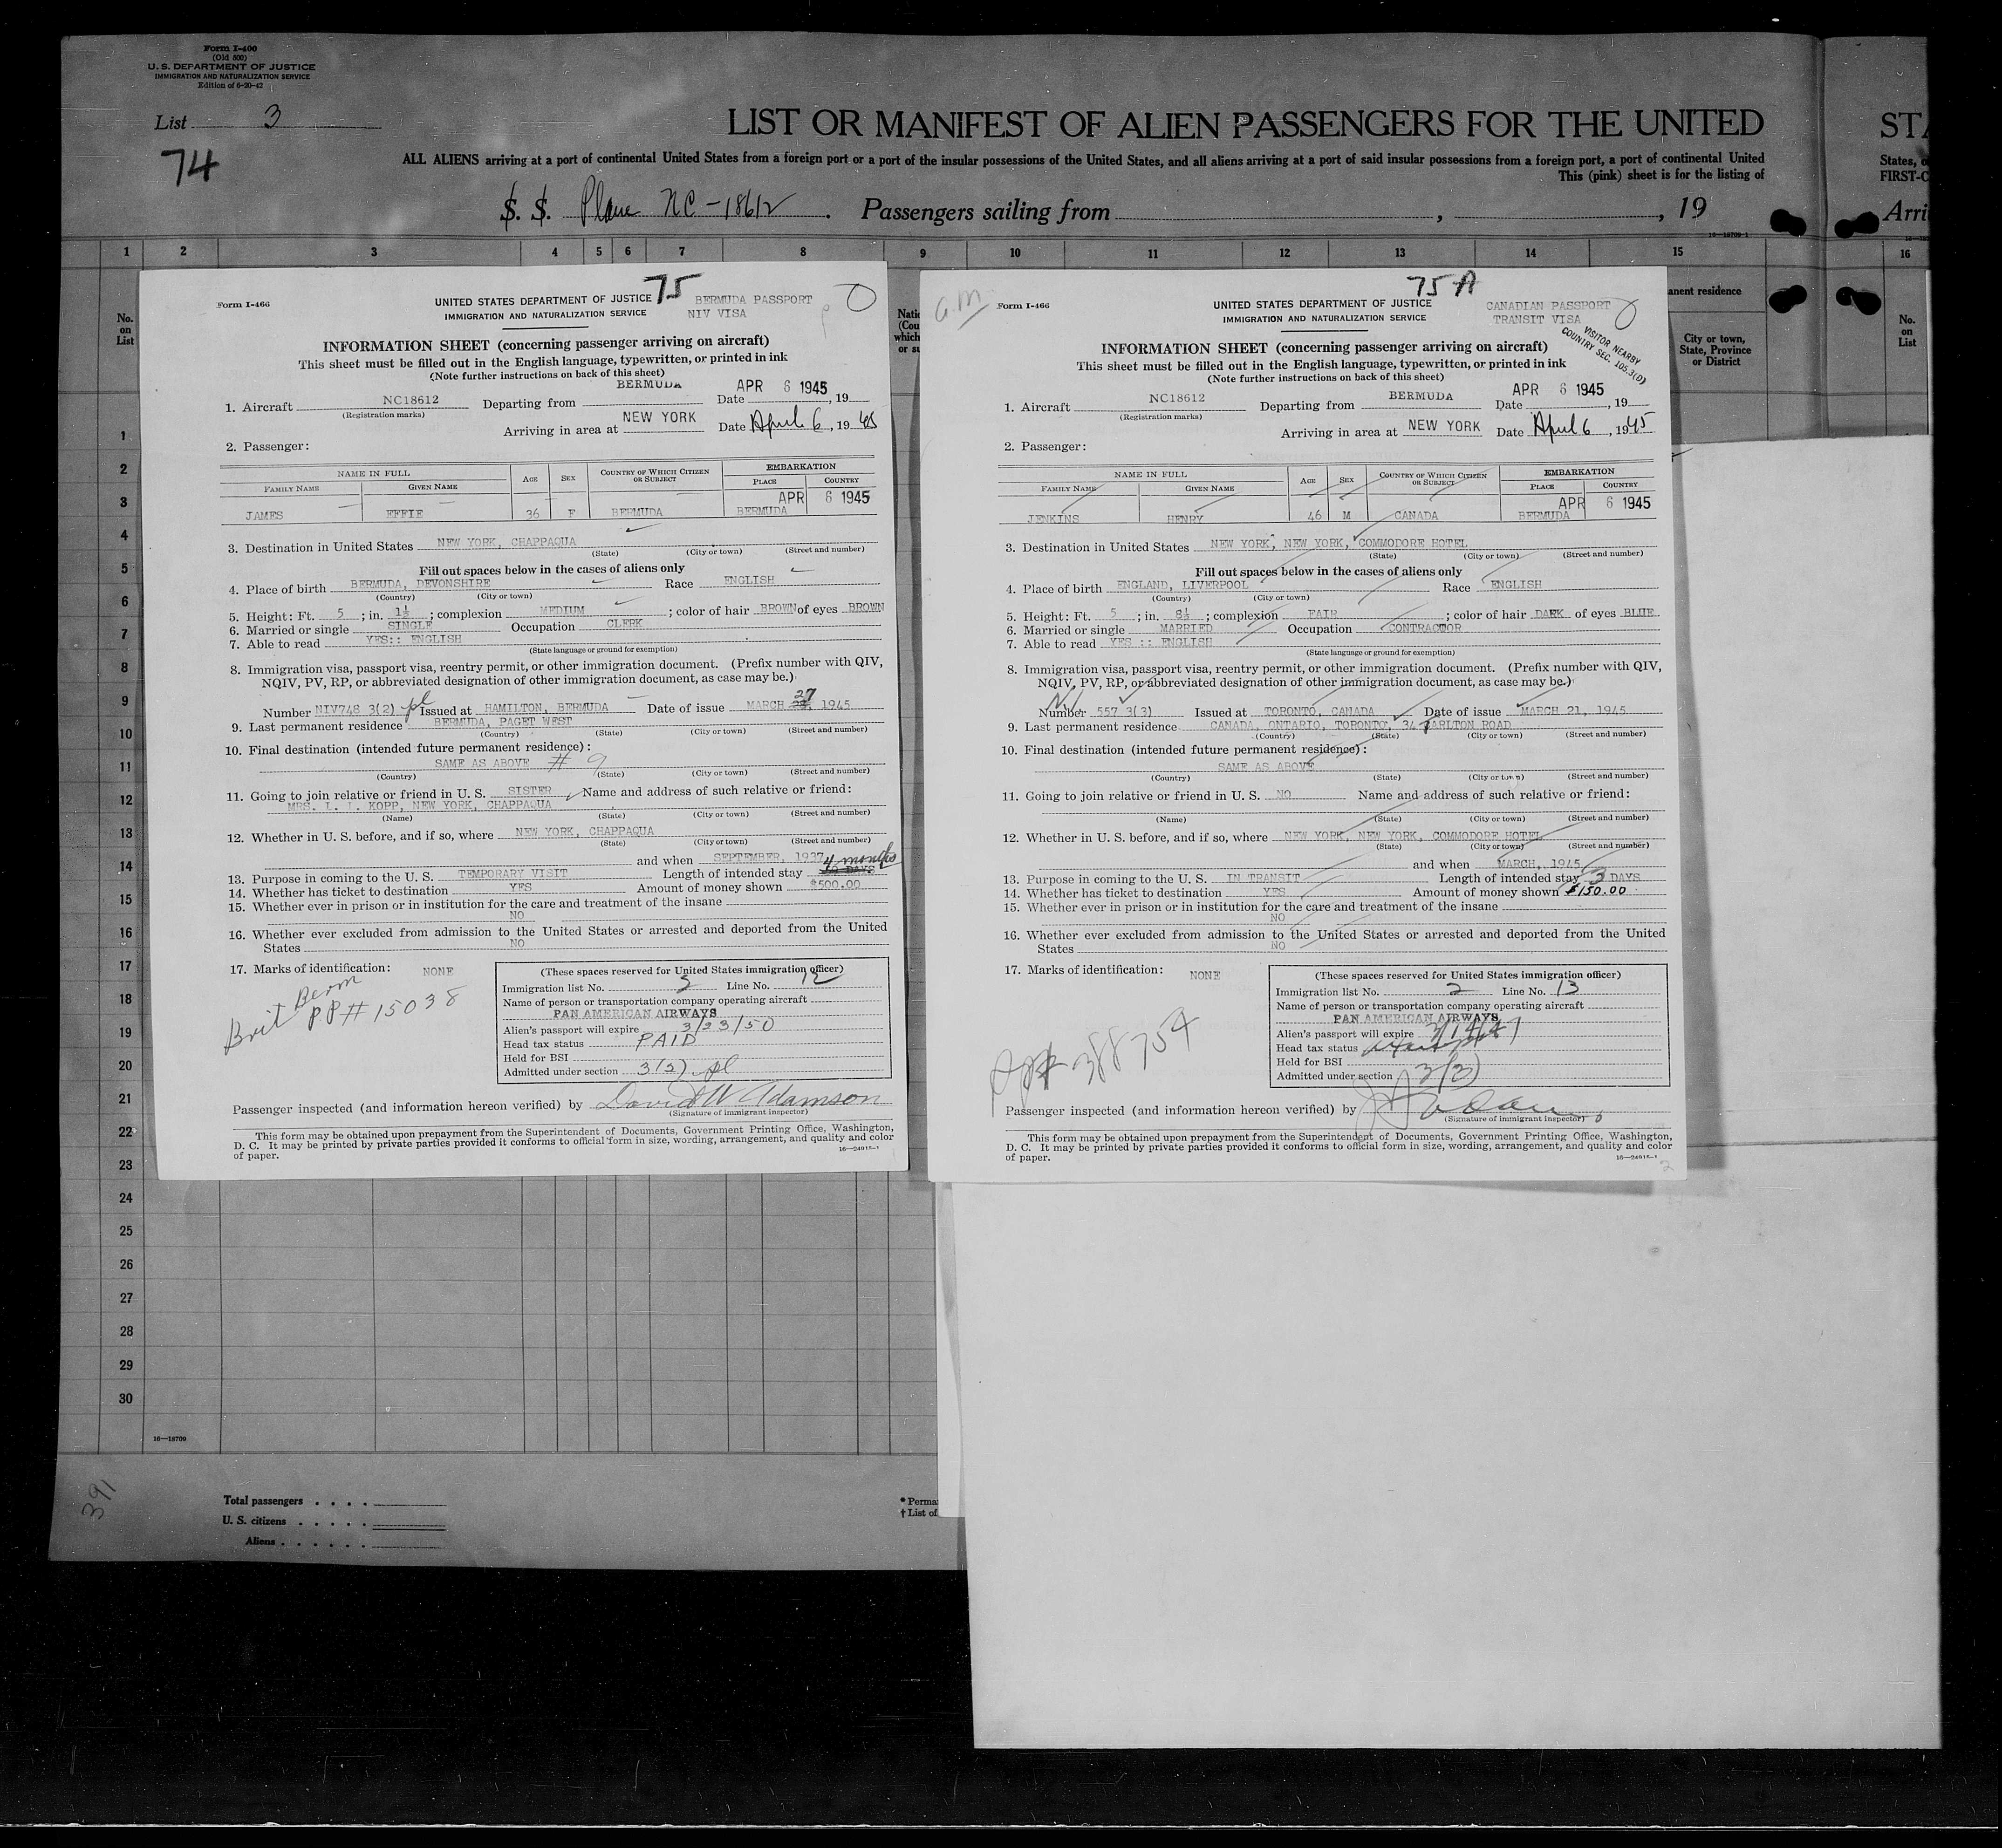 Form I-400
(Old 500)
U. S. DEPARTMENT OF JUSTICE
IMMIGRATION AND NATURALIZATION SERVICE
Edition of 6-20-42
List 3
74
LIST OR MANIFEST OF ALIEN PASSENGERS FOR THE UNITED
ALL ALIENS arriving at a port of continental United States from a foreign port or a port of the insular possessions of the United States, and all aliens arriving at a port of said insular possessions from a foreign port, a port of continental United
This (pink) sheet is for the listing of
S. S. Plane NC-18612. Passengers sailing from , , 19
16—18709-1
STA
States, o
FIRST-C
Arri
1 2 3 4 5 6 7 8 9 10 11 12 13 14 15 16
No. on List
anent residence
City or town, State, Province or District
No. on List
Form I-466
75
UNITED STATES DEPARTMENT OF JUSTICE
IMMIGRATION AND NATURALIZATION SERVICE
BERMUDA PASSPORT
NIV VISA
INFORMATION SHEET (concerning passenger arriving on aircraft)
This sheet must be filled out in the English language, typewritten, or printed in ink
(Note further instructions on back of this sheet)
1. Aircraft NC18612 Departing from BERMUDA Date APR 6 1945, 19
(Registration marks)
Arriving in area at NEW YORK Date April 6, 1945
2. Passenger:
NAME IN FULL AGE SEX COUNTRY OF WHICH CITIZEN OR SUBJECT EMBARKATION
FAMILY NAME GIVEN NAME PLACE COUNTRY
APR 6 1945
JAMES EFFIE 36 F BERMUDA BERMUDA
3. Destination in United States NEW YORK, CHAPPAQUA
(State) (City or town) (Street and number)
Fill out spaces below in the cases of aliens only
4. Place of birth BERMUDA, DEVONSHIRE Race ENGLISH
(Country) (City or town)
5. Height: Ft. 5 ; in. 1½ ; complexion MEDIUM ; color of hair BROWN of eyes BROWN
6. Married or single SINGLE Occupation CLERK
7. Able to read YES:: ENGLISH
(State language or ground for exemption)
8. Immigration visa, passport visa, reentry permit, or other immigration document. (Prefix number with QIV,
NQIV, PV, RP, or abbreviated designation of other immigration document, as case may be.)
Number NIV748 3(2) pl Issued at HAMILTON, BERMUDA Date of issue MARCH 27, 1945
9. Last permanent residence BERMUDA, PAGET WEST
(Country) (State) (City or town) (Street and number)
10. Final destination (intended future permanent residence):
SAME AS ABOVE # 9
(Country) (State) (City or town) (Street and number)
11. Going to join relative or friend in U. S. SISTER Name and address of such relative or friend:
MRS. L. I. KOPP, NEW YORK, CHAPPAQUA
(Name) (State) (City or town) (Street and number)
12. Whether in U. S. before, and if so, where NEW YORK, CHAPPAQUA
(State) (City or town) (Street and number)
and when SEPTEMBER, 1937
13. Purpose in coming to the U. S. TEMPORARY VISIT Length of intended stay 4 months
14. Whether has ticket to destination YES Amount of money shown $500.00
15. Whether ever in prison or in institution for the care and treatment of the insane
NO
16. Whether ever excluded from admission to the United States or arrested and deported from the United
States NO
17. Marks of identification: NONE
Brit Berm
PP# 15038
(These spaces reserved for United States immigration officer)
Immigration list No. 3 Line No. 12
Name of person or transportation company operating aircraft
PAN AMERICAN AIRWAYS
Alien's passport will expire 3/23/50
Head tax status PAID
Held for BSI
Admitted under section 3(2) pl
Passenger inspected (and information hereon verified) by David W Adamson
(Signature of immigrant inspector)
This form may be obtained upon prepayment from the Superintendent of Documents, Government Printing Office, Washington,
D. C. It may be printed by private parties provided it conforms to official form in size, wording, arrangement, and quality and color
of paper.
16—24915-1
G.M.
Form I-466
75 A
UNITED STATES DEPARTMENT OF JUSTICE
IMMIGRATION AND NATURALIZATION SERVICE
CANADIAN PASSPORT
TRANSIT VISA
VISITOR NEARBY
COUNTRY SEC. 105.3(D)
INFORMATION SHEET (concerning passenger arriving on aircraft)
This sheet must be filled out in the English language, typewritten, or printed in ink
(Note further instructions on back of this sheet)
1. Aircraft NC18612 Departing from BERMUDA Date APR 6 1945, 19
(Registration marks)
Arriving in area at NEW YORK Date April 6, 1945
2. Passenger:
NAME IN FULL AGE SEX COUNTRY OF WHICH CITIZEN OR SUBJECT EMBARKATION
FAMILY NAME GIVEN NAME PLACE COUNTRY
APR 6 1945
JENKINS HENRY 46 M CANADA BERMUDA
3. Destination in United States NEW YORK, NEW YORK, COMMODORE HOTEL
(State) (City or town) (Street and number)
Fill out spaces below in the cases of aliens only
4. Place of birth ENGLAND, LIVERPOOL Race ENGLISH
(Country) (City or town)
5. Height: Ft. 5 ; in. 8½ ; complexion FAIR ; color of hair DARK of eyes BLUE
6. Married or single MARRIED Occupation CONTRACTOR
7. Able to read YES :: ENGLISH
(State language or ground for exemption)
8. Immigration visa, passport visa, reentry permit, or other immigration document. (Prefix number with QIV,
NQIV, PV, RP, or abbreviated designation of other immigration document, as case may be.)
Number 557 3(3) Issued at TORONTO, CANADA Date of issue MARCH 21, 1945
9. Last permanent residence CANADA, ONTARIO, TORONTO, 34 ARLTON ROAD
(Country) (State) (City or town) (Street and number)
10. Final destination (intended future permanent residence):
SAME AS ABOVE
(Country) (State) (City or town) (Street and number)
11. Going to join relative or friend in U. S. NO Name and address of such relative or friend:
(Name) (State) (City or town) (Street and number)
12. Whether in U. S. before, and if so, where NEW YORK, NEW YORK, COMMODORE HOTEL
(State) (City or town) (Street and number)
and when MARCH, 1945
13. Purpose in coming to the U. S. IN TRANSIT Length of intended stay 3 DAYS
14. Whether has ticket to destination YES Amount of money shown $150.00
15. Whether ever in prison or in institution for the care and treatment of the insane
NO
16. Whether ever excluded from admission to the United States or arrested and deported from the United
States NO
17. Marks of identification: NONE
PP# 388754
(These spaces reserved for United States immigration officer)
Immigration list No. 2 Line No. 13
Name of person or transportation company operating aircraft
PAN AMERICAN AIRWAYS
Alien's passport will expire
Head tax status
Held for BSI
Admitted under section 3(3)
Passenger inspected (and information hereon verified) by
(Signature of immigrant inspector)
This form may be obtained upon prepayment from the Superintendent of Documents, Government Printing Office, Washington,
D. C. It may be printed by private parties provided it conforms to official form in size, wording, arrangement, and quality and color
of paper.
16—24915-1
2
1
2
3
4
5
6
7
8
9
10
11
12
13
14
15
16
17
18
19
20
21
22
23
24
25
26
27
28
29
30
16—18709
391
Total passengers . . . .
U. S. citizens . . . . .
Aliens . . . . . .
* Perma
† List of